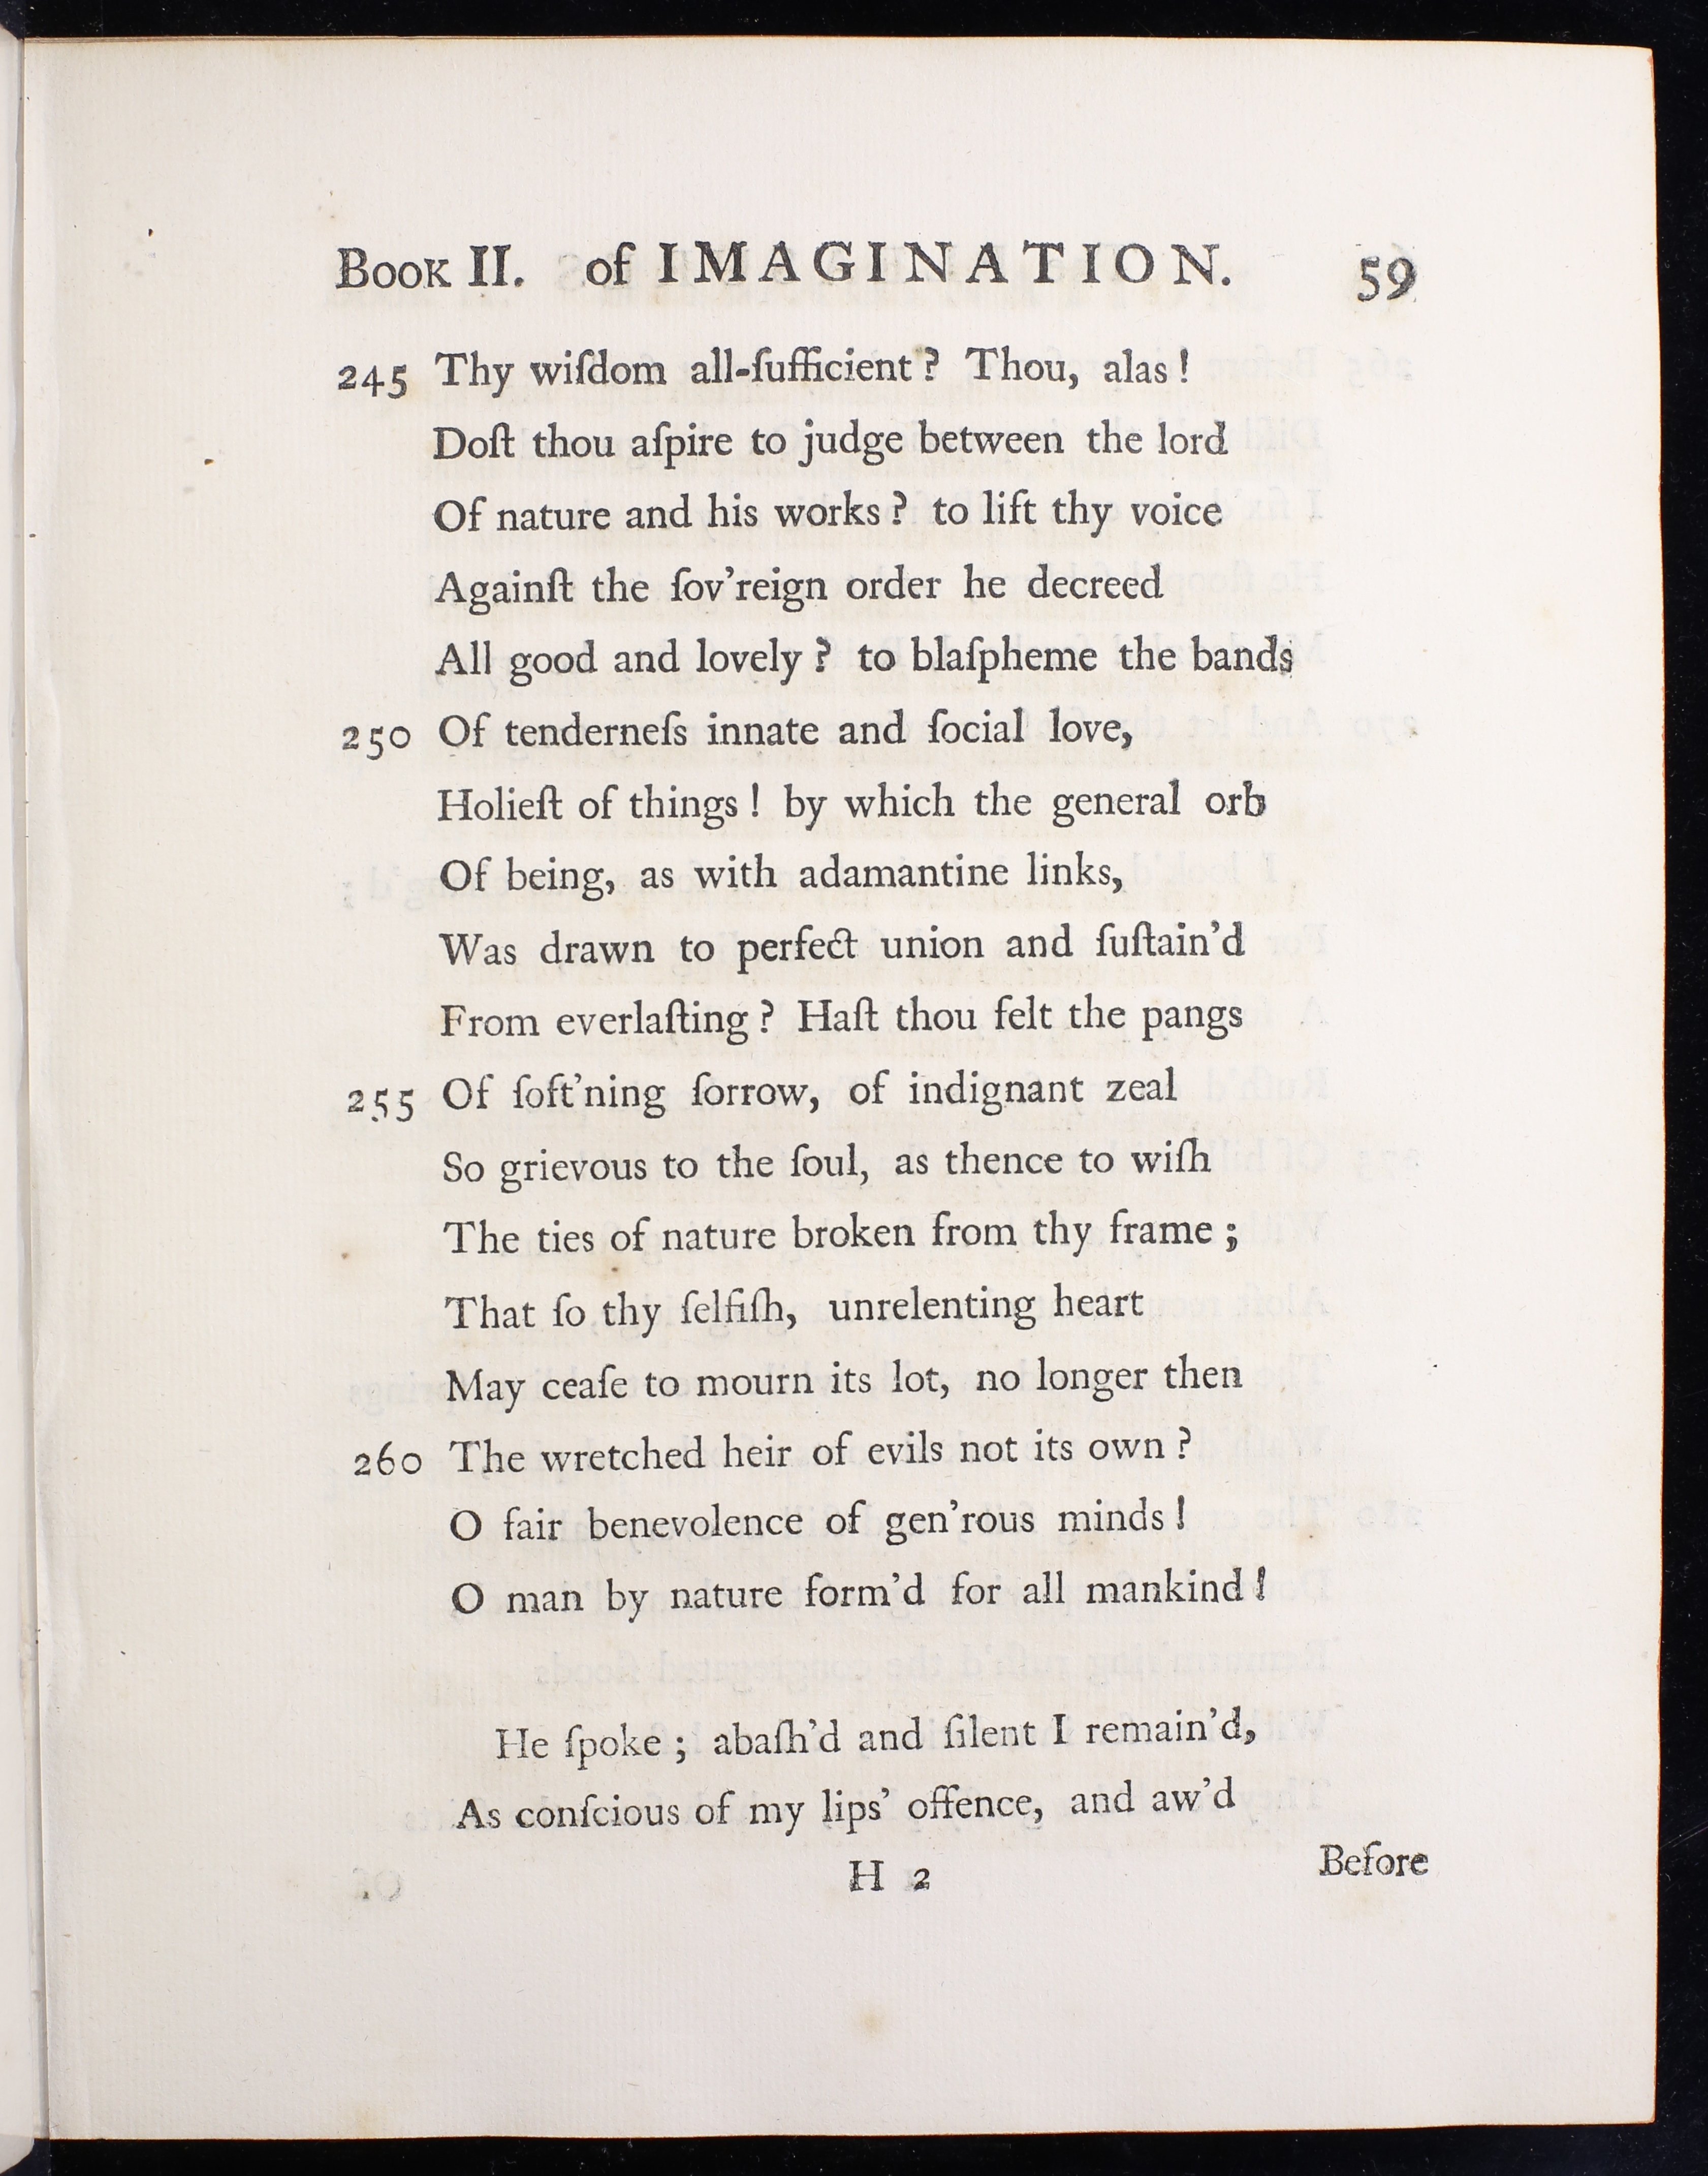 Book II. of IMAGINATION. 59
245 Thy wiſdom all-ſufficient? Thou, alas!
Doſt thou aſpire to judge between the lord
Of nature and his works? to lift thy voice
Againſt the ſov'reign order he decreed
All good and lovely? to blaſpheme the bands
250 Of tenderneſs innate and ſocial love,
Holieſt of things! by which the general orb
Of being, as with adamantine links,
Was drawn to perfect union and ſuſtain'd
From everlaſting? Haſt thou felt the pangs
255 Of ſoft'ning ſorrow, of indignant zeal
So grievous to the ſoul, as thence to wiſh
The ties of nature broken from thy frame;
That ſo thy ſelfiſh, unrelenting heart
May ceaſe to mourn its lot, no longer then
260 The wretched heir of evils not its own?
O fair benevolence of gen'rous minds!
O man by nature form'd for all mankind!
He ſpoke; abaſh'd and ſilent I remain'd,
As conſcious of my lips' offence, and aw'd
H 2 Before